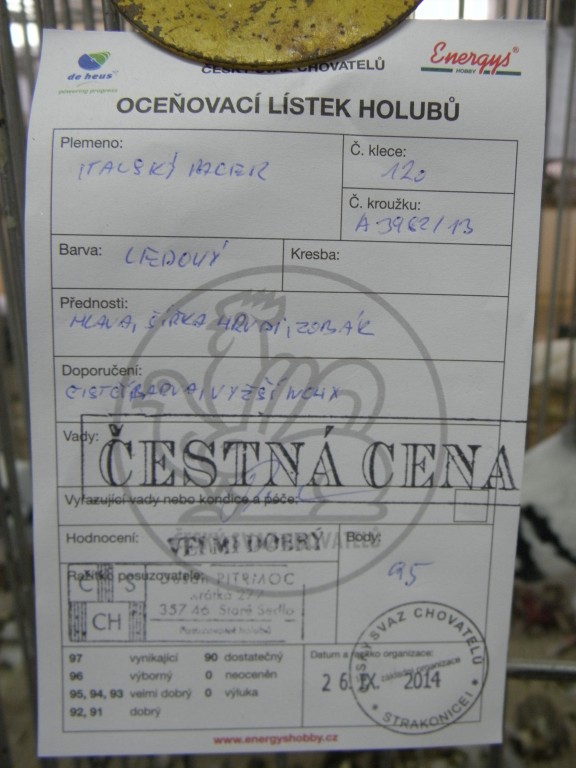 de heus
powering progress
ČESKÝ SVAZ CHOVATELŮ
Energys®
HOBBY
OCEŇOVACÍ LÍSTEK HOLUBŮ
Plemeno:
ITALSKÝ RACEK
Č. klece:
120
Č. kroužku:
A 3962/13
Barva: LEDOVÝ
Kresba:
Přednosti:
HLAVA, ŠÍŘKA HRUDI, ZOBÁK
Doporučení:
ČISTČÍ BARVA, VYŠŠÍ NOHY
Vady:
ČESTNÁ CENA
Vyřazující vady nebo kondice a péče:
Hodnocení: VELMI DOBRÝ
Body:
95
ČESKÝ SVAZ CHOVATELŮ
Razítko posuzovatele:
Č S
CH
357 46 Staré Sedlo
97 vynikající 90 dostatečný
96 výborný 0 neoceněn
95, 94, 93 velmi dobrý 0 výluka
92, 91 dobrý
Datum a razítko organizace:
26. IX. 2014
ČESKÝ SVAZ CHOVATELŮ
základní organizace
STRAKONICE I
www.energyshobby.cz